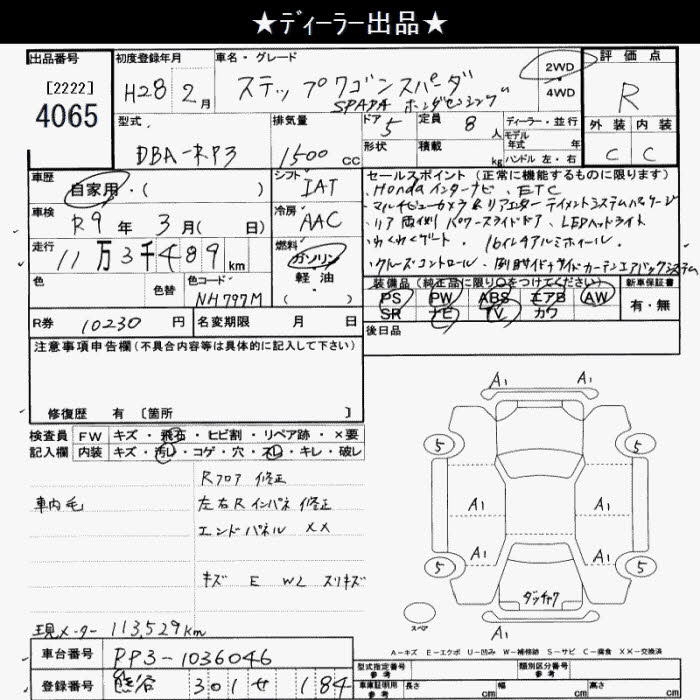 ★ディーラー出品★
出品番号
[2222]
4065
初度登録年月
H28 2月
車名・グレード
ステップワゴンスパーダ
SPADA ホンダセンシング
2WD
4WD
評価点
R
型式
DBA-RP3
排気量
1500 cc
ドア 5
形状
定員 8人
積載 kg
ディーラー・並行
モデル年式 年
ハンドル 左・右
外装 内装
C C
車歴
自家用・( )
シフト IAT
車検
R9年 3月( 日)
冷房 AAC
走行
11万3千489km
燃料
ガソリン
軽油
( )
色
色替
色コード
NH797M
R券 10230円
名変期限 月 日
セールスポイント(正常に機能するものに限ります)
・Hondaインターナビ ・ETC
・マルチビューカメラ&リアエンターテイメントシステムパッケージ
・リア両側パワースライドドア、LEDヘッドライト
・わくわくゲート・ 16インチアルミホイール・
・クルーズコントロール・前席サイド&サイドカーテンエアバッグシステム
装備品(純正品に限り○をつけてください)
PS PW ABS エアB AW
SR ナビ TV カワ
新車保証書
有・無
後日品
注意事項申告欄(不具合内容等は具体的に記入して下さい)
修復歴 有 [箇所 ]
検査員記入欄
FW キズ・飛石・ヒビ割・リペア跡・×要
内装 キズ・汚レ・コゲ・穴・スレ・キレ・破レ
Rフロア 修正
車内毛
左右Rインパネ 修正
エンドパネル ××
キズ E W2 スリキズ
現メーター 113,529km
車台番号 RP3-1036046
登録番号 熊谷 301 せ 184
A1 A1
5 5
A1 A1
A1 A1
5 5
ダッチャク
スペア
A1
A-キズ E-エクボ U-凹み W-補修跡 S-サビ C-腐食 ××-交換済
型式指定番号 参考
類別区分番号 参考
車庫証明用 参考
長さ cm 幅 cm 高さ cm